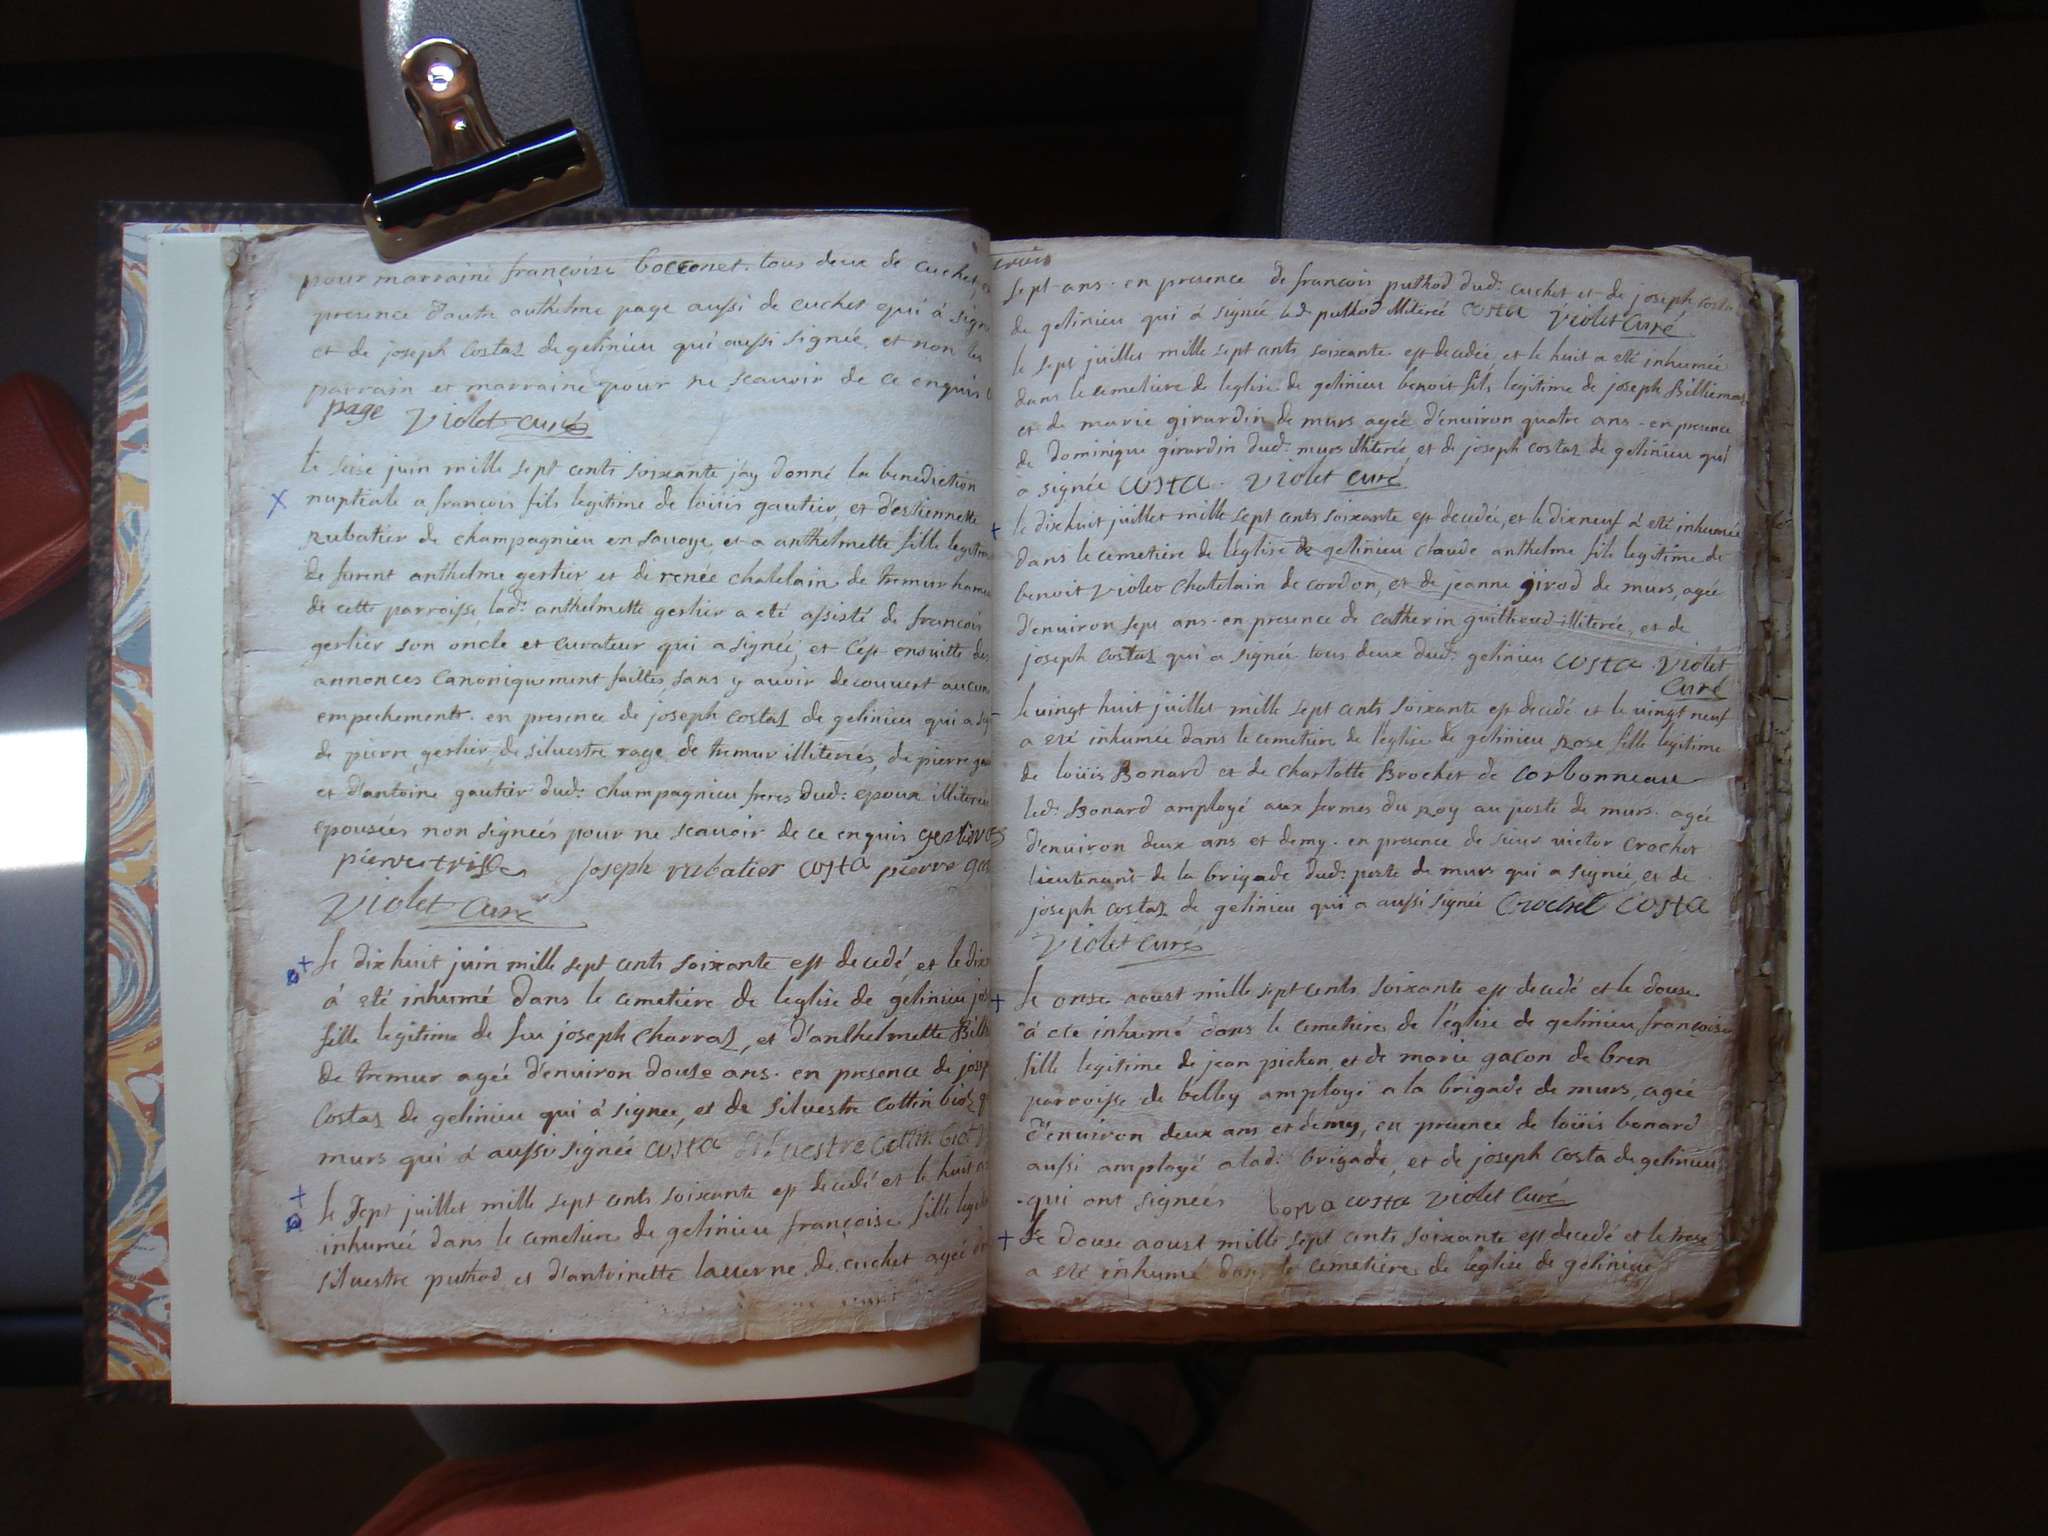 pour marraine françoise bocconet. tous deux de cuchet,
presence d'autre anthelme page aussi de cuchet qui à signé
et de joseph costaz de gelinieu qui aussi signée, et non les
parrain et marraine pour ne scauoir de ce enquis
page Violet curé
le seise juin mille sept cents soixante jay donné la benediction
nuptiale a françois fils legitime de loüis gautier, et d'estiennette
Rubatier de champagnieu en sauoye, et a anthelmette fille legitime
de furent anthelme gerlier et de renée chatelain de tremur hameau
de cette parroisse, lad: anthelmette gerlier a eté assisté de francois
gerlier son oncle et curateur qui a signée, et c'est ensuitte des
annonces canoniquement faittes, sans y auoir decouuert aucun
empechements. en presence de joseph costaz de gelinieu qui a
de pierre gerlier, de siluestre rage de tremur illiterés, de pierre
et d'antoine gautier dud: champagnieu freres dud: epoux illiterés
epousées non signeés pour ne scauoir de ce enquis gerlier
pierre joseph rubatier costa pierre
Violet curé
le dixhuit juin mille sept cents soixante est decedé, et le
à eté inhumé dans le cemetiere de leglise de gelinieu
fille legitime de feu joseph charraz, et d'anthelmette
de tremur ageé d'enuiron douse ans. en presence de
costaz de gelinieu qui à signeé, et de siluestre cottin bioz
murs qui à aussi signeé costa siluestre cottin biot
le sept juillet mille sept cents soixante est decedé et le huit
inhumeé dans le cemetiere de gelinieu françoise fille
siluestre puthod et d'antoinette lauerne de cuchet ageé
sept ans. en presence de francois puthod dud: cuchet et de joseph costaz
de gelinieu qui à signée led: puthod illiteré costa Violet Curé
le sept juillet mille sept cents soixante est decedée et le huit a eté inhumée
dans le cemetiere de leglise de gelinieu benoit fils legitime de joseph Billiemaz
et de marie girardin de murs ageé d'enuiron quatre ans. en presence
de dominique girardin dud: murs illiterée, et de joseph costaz de gelinieu qui
a signée costa. Violet curé
le dixhuit juillet mille sept cents soixante est decedée, et le dixneuf à eté inhumée
dans le cemetiere de l'église de gelinieu claude anthelme fils legitime de
benoit Violet chatelain de cordon, et de jeanne girod de murs, ageé
d'enuiron sept ans. en presence de catherin guilhoud illiterée, et de
joseph costaz qui a signée. tous deux dud: gelinieu costa. Violet
Curé
le uingt huit juillet mille sept cents soixante est decedé et le uingt neuf
a eté inhumee dans le cemetiere de l'église de gelinieu Rose fille legitime
de loüis Bonard et de charlotte Brochet de corbonneau
led: Bonard amployé aux fermes du Roy au poste de murs. ageé
d'enuiron deux ans et demy. en presence de sieur uictor crochet
lieutenant de la brigade dud: poste de murs qui a signeé, et de
joseph costaz de gelinieu qui a aussi signeé Crochet costa
Violet curé
le onse aoust mille sept cents soixante est decedé et le douse
à eté inhumé dans le cemetiere de l'église de gelinieu françoise
fille legitime de jean pichon, et de marie gacon de bren
parroisse de belley amployé a la brigade de murs, ageé
d'enuiron deux ans et demy, en presence de loüis bonard
aussi amployé a lad: brigade, et de joseph costa de gelinieu
qui ont signeés bona costa Violet Curé
le douse aoust mille sept cents soixante est decedé et le trese
a eté inhumé dans le cemetiere de leglise de gelinieu